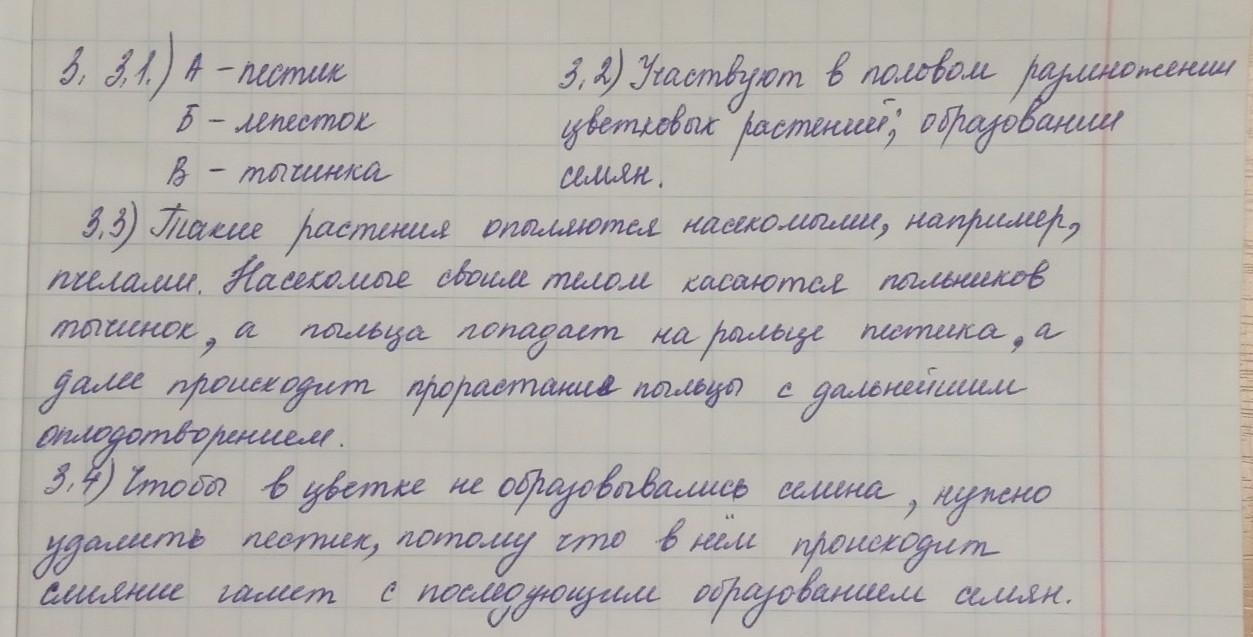 3. 3.1.) А – пестик
Б – лепесток
В – тычинка
3.2) Участвуют в половом размножении
цветковых растений; образовании
семян.
3.3) Такие растения опыляются насекомыми, например,
пчелами. Насекомые своим телом касаются пыльников
тычинок, а пыльца попадает на рыльце пестика, а
далее происходит прорастание пыльцы с дальнейшим
оплодотворением.
3.4) Чтобы в цветке не образовывались семена, нужно
удалить пестик, потому что в нём происходит
слияние гамет с последующим образованием семян.